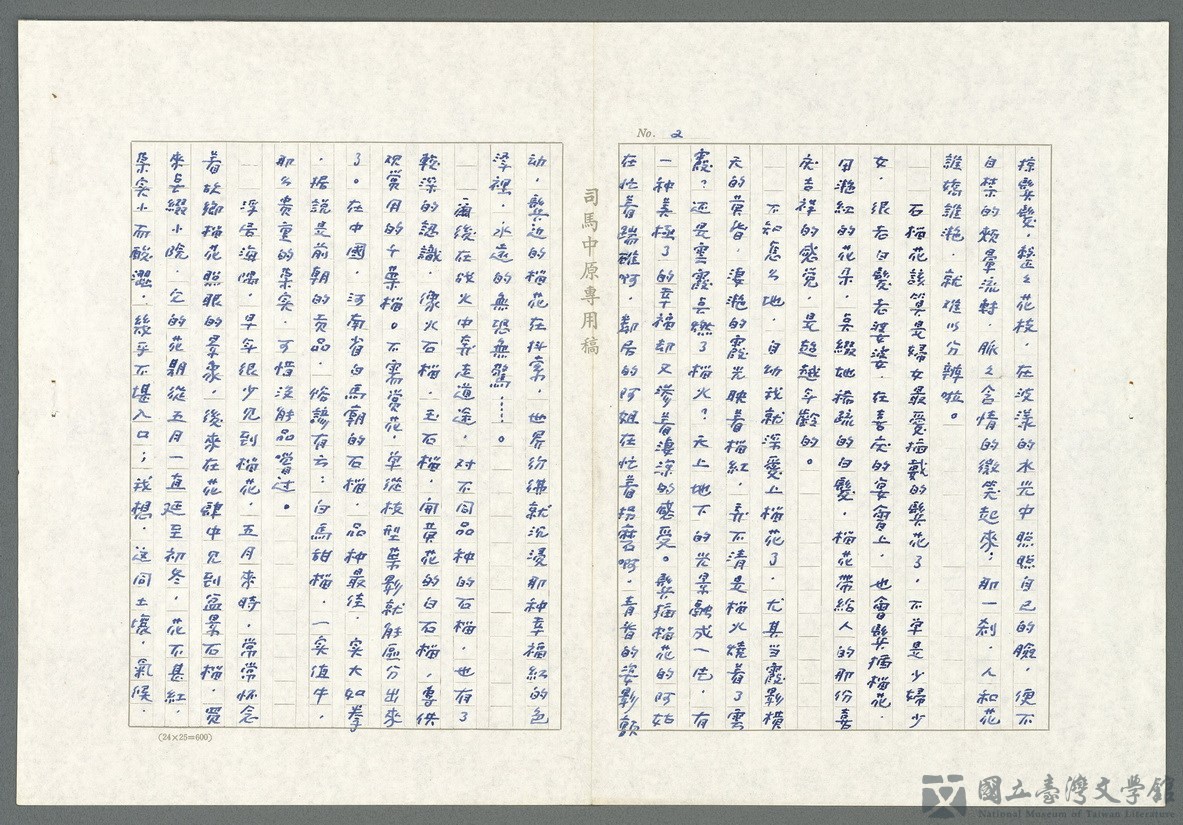 No. 2
掠鬓髮，輕々花枝，在波漾的水光中照照自己的臉，便不
自禁的頰暈流轉，脈々含情的微笑起來；那一刹，人和花
誰嬌誰滟，就难以分辨啦。
石榴花該算是婦女最愛插戴的鬓花了，不单是少婦少
女，很多白髮老婆婆，在喜庆的宴會上，也會鬓插榴花，
用滟紅的花朵，点綴她稀疏的白髮，榴花帶給人的那份喜
庆吉祥的感觉，是超越年齡的。
不知怎么地，自幼我就深愛上榴花了，尤其当霞影横
天的黄昏，淒滟的霞光映着榴紅，弄不清是榴火燒着了雲
霞？还是雲霞点燃了榴火？天上地下的光景融成一宅，有
一种美極了的幸福却又滲着淒涼的感受。鬓插榴花的阿姑
在忙着踹碓啊，鄰居的阿姐在忙着拐磨啊，青春的姿影顫
司馬中原專用稿
动，鬓边的榴花在抖索，世界彷彿就沉浸那种幸福紅的色
澤裡，永遠的無恐無驚……。
而後在战火中奔走道途，对不同品种的石榴，也有了
較深的認識，像火石榴，玉石榴，闹黄花的白石榴，專供
欣赏用的千葉榴。不需赏花，单從枝型葉影就能區分出來
了。在中國，河南省白馬廟的石榴，品种最佳，实大如拳
，据說是前朝的贡品，俗諺有云：白馬甜榴，一实值牛，
那么贵重的菓实，可惜没能品嚐过。
浮居海隅，早年很少见到榴花，五月來時，常常怀念
着故鄉榴花照眼的景象，後來在花肆中见到盆景石榴，買
來点綴小院，它的花期從五月一直延至初冬，花不甚紅，
菓实小而酸澀，幾乎不堪入口；我想，这同土壤，氣候，
(24×25=600)
國立臺灣文學館
National Museum of Taiwan Literature